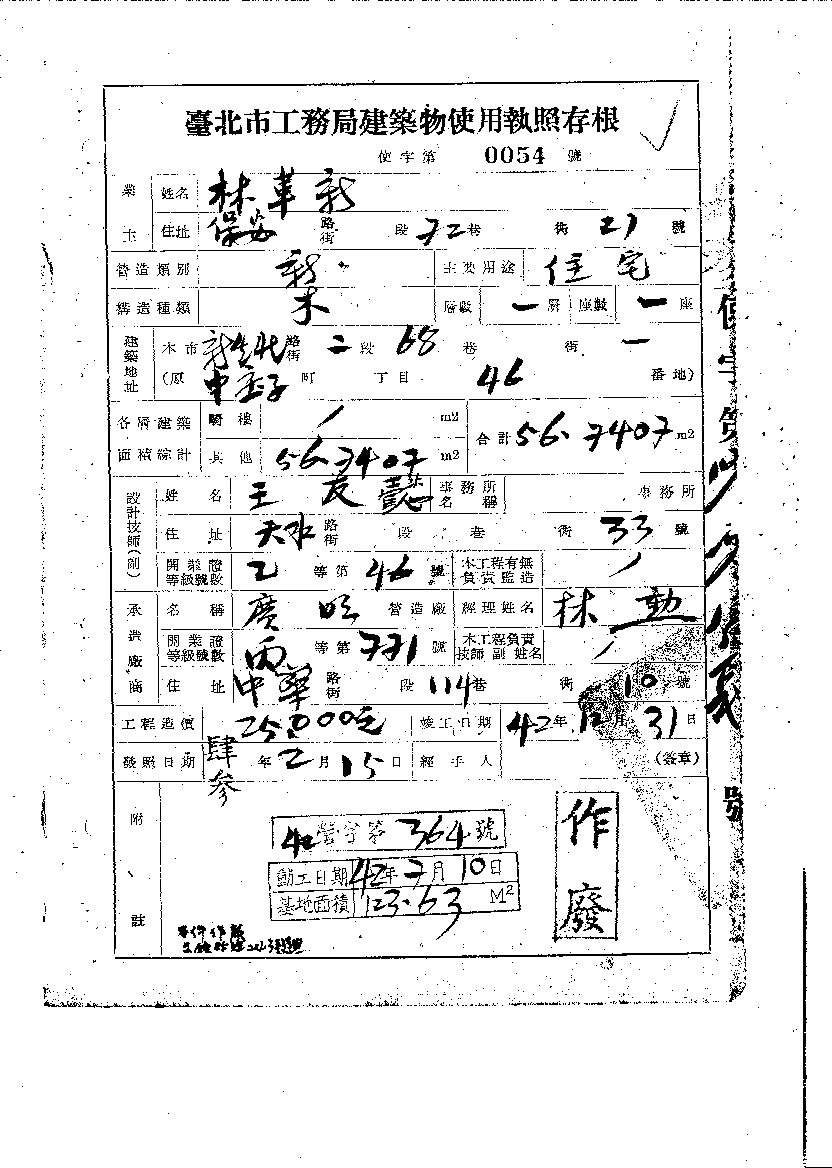 臺北市工務局建築物使用執照存根
使字第 0054 號
業主 姓名 林革新
住址 保安 路街 段 72 巷 街 21 號
營造類別 新 主要用途 住宅
構造種類 木 層數 一 層 座數 一 座
建築地址 本市 新生北 路街 二 段 68 巷 街 一
(原 中 子 町 丁目 46 番地)
各層建築面積綜計 騎樓 / m2 合計 56.7407 m2
其他 56.7407 m2
設計技師(副) 姓名 王友 事務所名稱 事務所
住址 天水 路街 段 巷 街 33 號
開業證等級號數 乙 等第 46 號 本工程有無負責監造 /
承造廠商 名稱 廣 營造廠 經理姓名 林勳
開業證等級號數 丙 等第 771 號 本工程負責技師副姓名 /
住址 中華 路街 段 114 巷 街 10 號
工程造價 25,000元 竣工日期 42年12月31日
發照日期 肆參 年 2 月 15 日 經手人 (簽章)
附註
42營字第 364 號
動工日期 42年7月10日
基地面積 123.63 M2
作廢
使字第
號